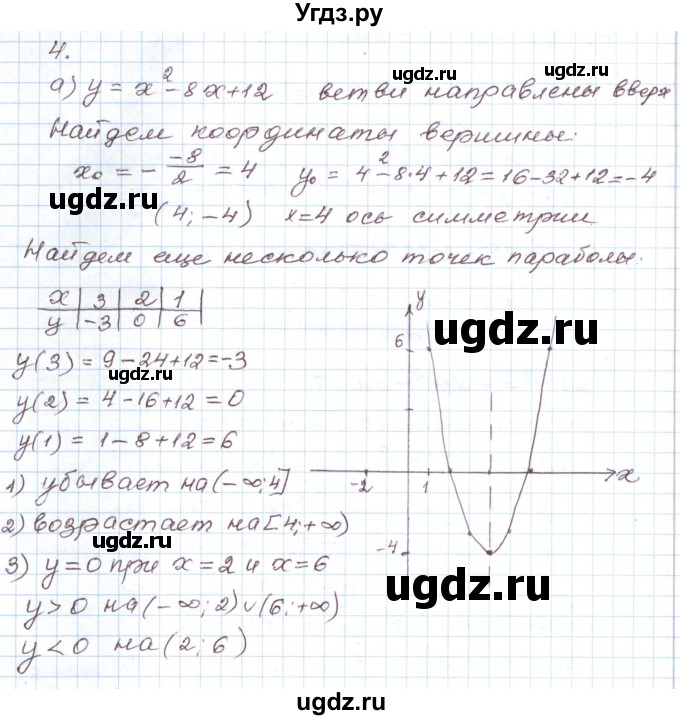 Угдз.ру
4.
а) y = x² - 8x + 12 ветви направлены вверх
ugdz.ru
ugdz.ru
Найдем координаты вершины:
x₀ = - -8/2 = 4 y₀ = 4² - 8·4 + 12 = 16 - 32 + 12 = -4
ugdz.ru
(4; -4) x = 4 ось симметрии
ugdz.ru
Найдем еще несколько точек параболы:
x | 3 | 2 | 1 |
y | -3 | 0 | 6 |
y
6
ugdz.ru
y(3) = 9 - 24 + 12 = -3
ugdz.ru
y(2) = 4 - 16 + 12 = 0
y(1) = 1 - 8 + 12 = 6
-2 1 x
1) убывает на (-∞; 4]
2) возрастает на [4; +∞)
ugdz.ru
-4
3) y = 0 при x = 2 и x = 6
ugdz.ru
y > 0 на (-∞; 2) ∪ (6; +∞)
y < 0 на (2; 6)
ugdz.ru